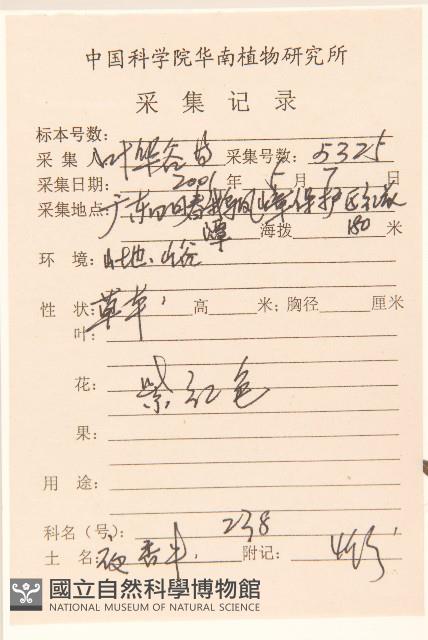 中国科学院华南植物研究所
采集记录
标本号数:
采集人 叶华谷 等 采集号数: 5325
采集日期: 2001 年 5 月 7 日
采集地点: 广东 阳春 鹅凰嶂保护区
潭 海拨 180 米
环境: 山地、山谷
性状: 草本, 高 米; 胸径 厘米
叶:
花: 紫红色
果:
用途:
科名(号): 238
土名: 附记:
國立自然科學博物館
NATIONAL MUSEUM OF NATURAL SCIENCE